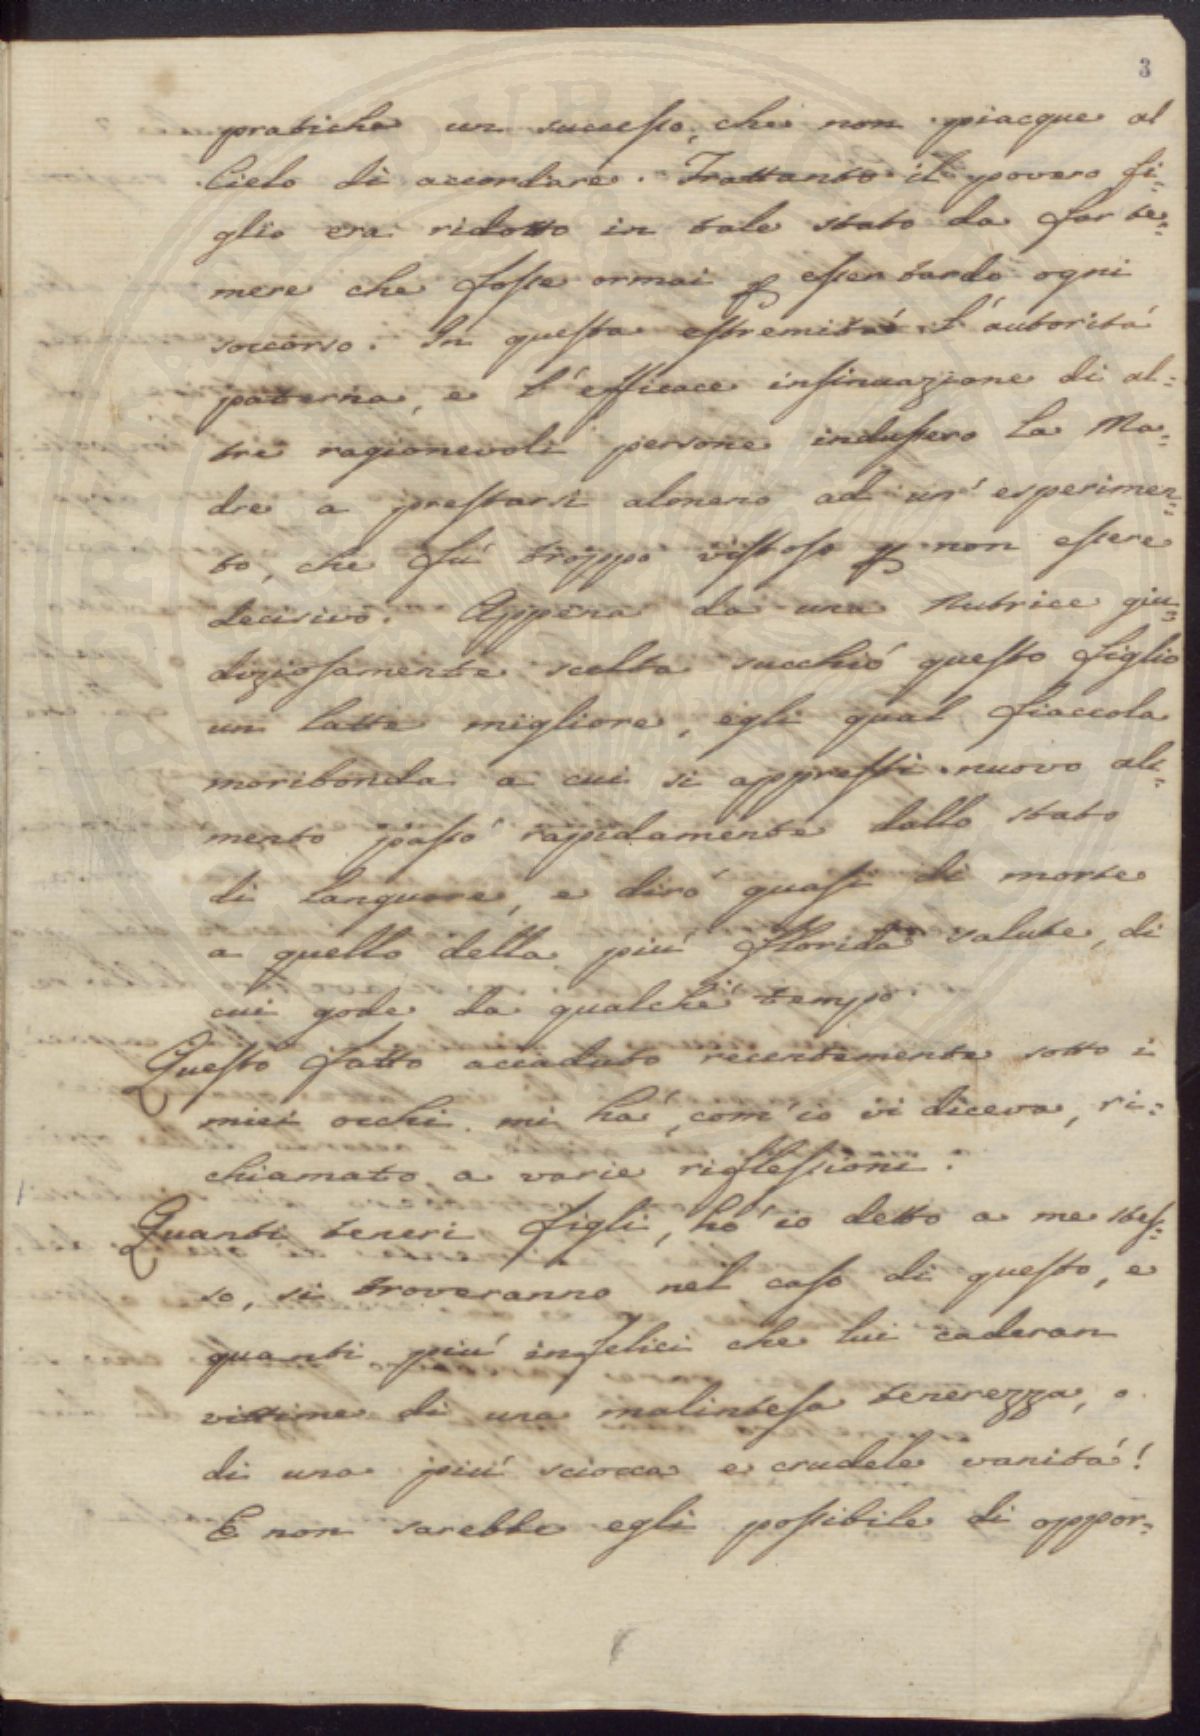 3
pratiche un successo, che non piacque al
Cielo di accordare. Trattanto il povero fi=
glio era ridotto in tale stato da far te=
mere che fosse ormai p esser tardo ogni
soccorso. In questa estremitá l'autoritá
paterna, e l'efficace insinuazione di al=
tre ragionevoli persone indussero la Ma=
dre a prestarsi almeno ad un' esperimen=
to, che fú troppo vistoso p non essere
decisivo. Appena da una Nutrice giu=
diziosamente scelta succhió questo figlio
un latte migliore, egli qual fiaccola
moribonda a cui si appressi nuovo ali=
mento passó rapidamente dallo stato
di languore, e diró quasi di morte
a quello della piú florida salute, di
cui gode da qualche tempo.
Questo fatto accaduto recentemente sotto i
miei occhi mi há, com'io vi diceva, ri=
chiamato a varie riflessioni.
Quanti teneri figli, hó io detto a me stes=
so, si troveranno nel caso di questo, e
quanti piú infelici che lui caderan
vittime di una malintesa tenerezza, o
di una piú sciocca e crudele vanitá!
E non sarebbe egli possibile di oppor=